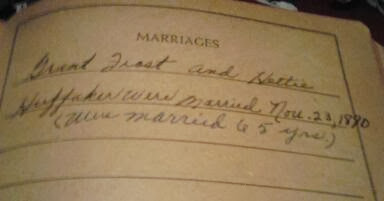 MARRIAGES
Grant Frost and Hettie
Huffaker were married Nov. 23, 1890
(were married 65 yrs)